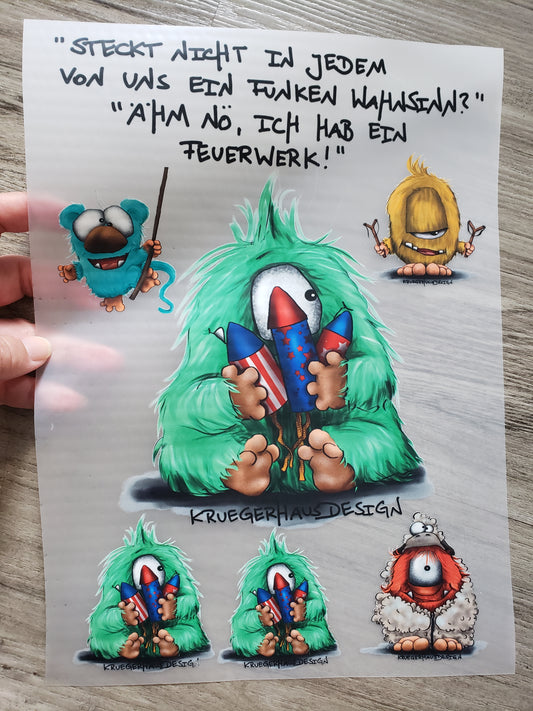 "STECKT NICHT IN JEDEM
VON UNS EIN FUNKEN WAHNSINN?"
"ÄHM NÖ, ICH HAB EIN
FEUERWERK!"
KRUEGERHAUSDESIGN
KRUEGERHAUSDESIGN
KRUEGERHAUSDESIG!
KRUEGERHAUSDESIGN
KRUEGERHAUSDESIGN